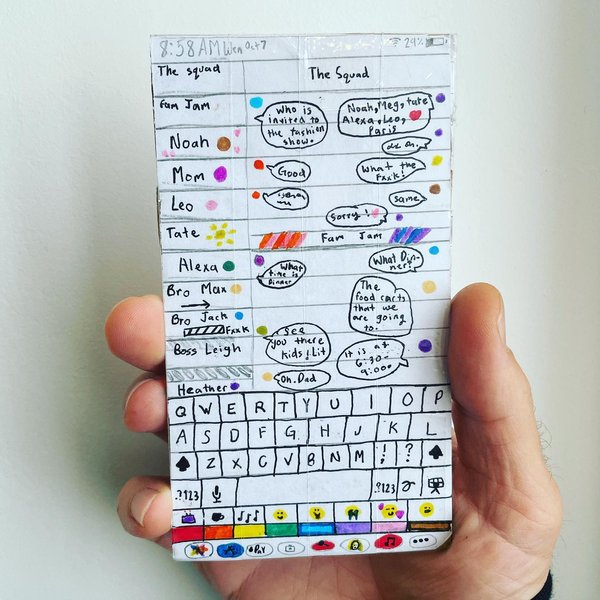 8:58AM Wen Oct 7 29%
The squad
The Squad
Fam Jam
Noah
Mom
Leo
Tate
Alexa
Bro Max
Bro Jack
Fxxk
Boss Leigh
Heather
Who is
invited to
the fashion
show.
Noah, Meg, Tate
Alexa, Leo,
Paris
Good
What the
Fxxk!
same
Sorry!
Fam Jam
What
time is
Dinner
What Din-
ner?
The
food carts
that we
are going
to.
See
you there
kids! Lit
it is at
6:30-
9:00
Oh. Dad
Q W E R T Y U I O P
A S D F G H J K L
Z X C V B N M ! ?
.?123 .?123
Pay